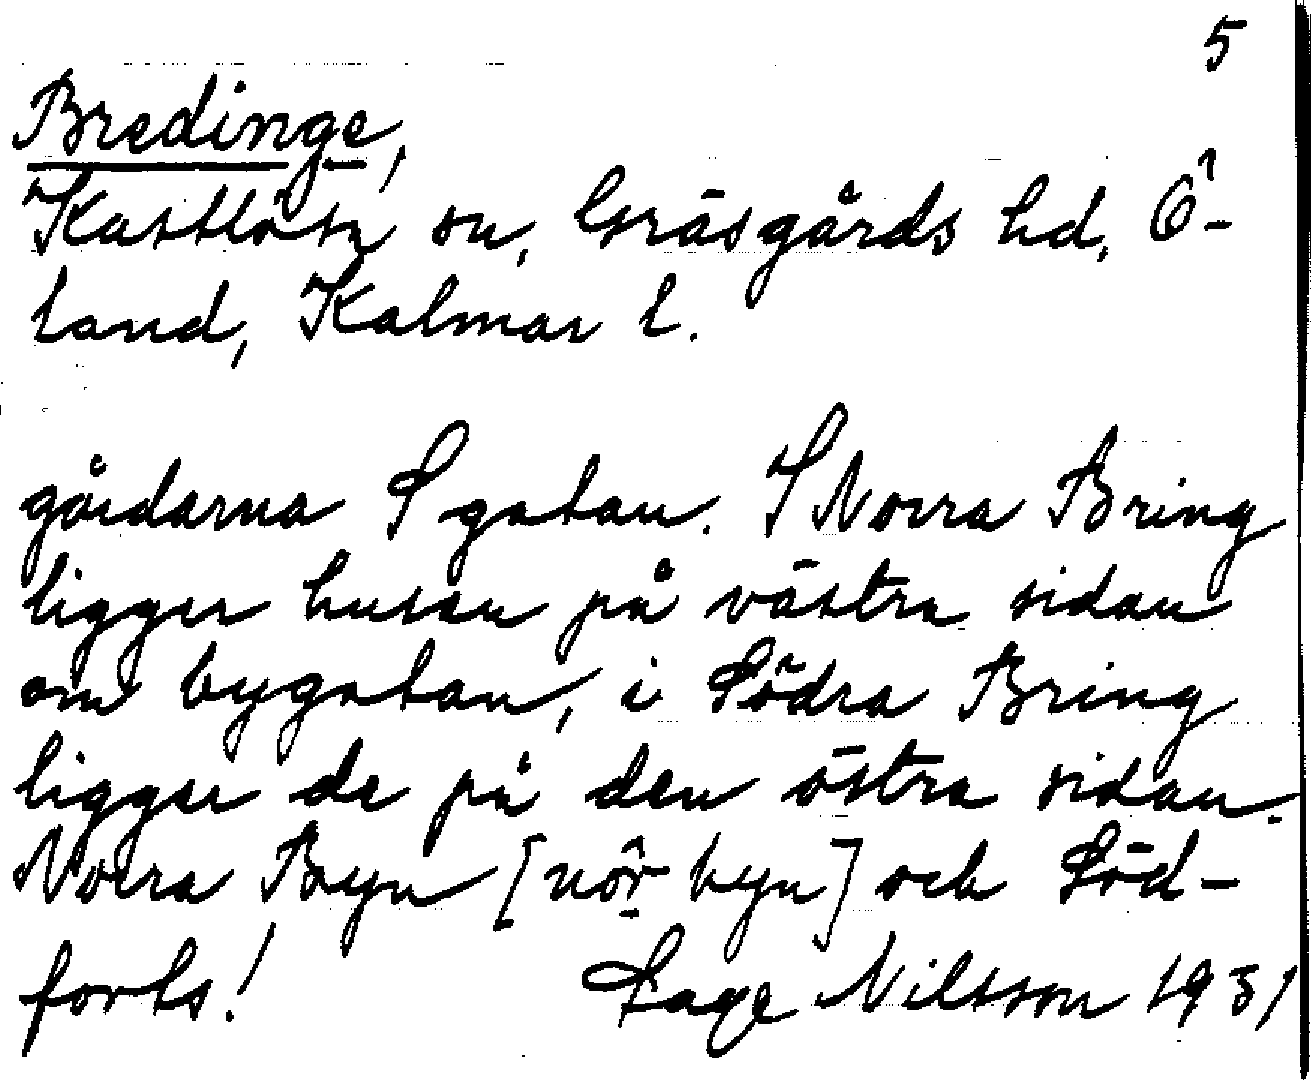 5
Bredinge,
Kastlösa sn, Gräsgårds hd, Ö-
land, Kalmar l.
gårdarna I gatan. I Norra Bring
ligger husen på västra sidan
om bygatan, i Södra Bring
ligger de på den östra sidan.
Norra Byn [nör byn] och Söd-
forts! Sage Nilsson 1931